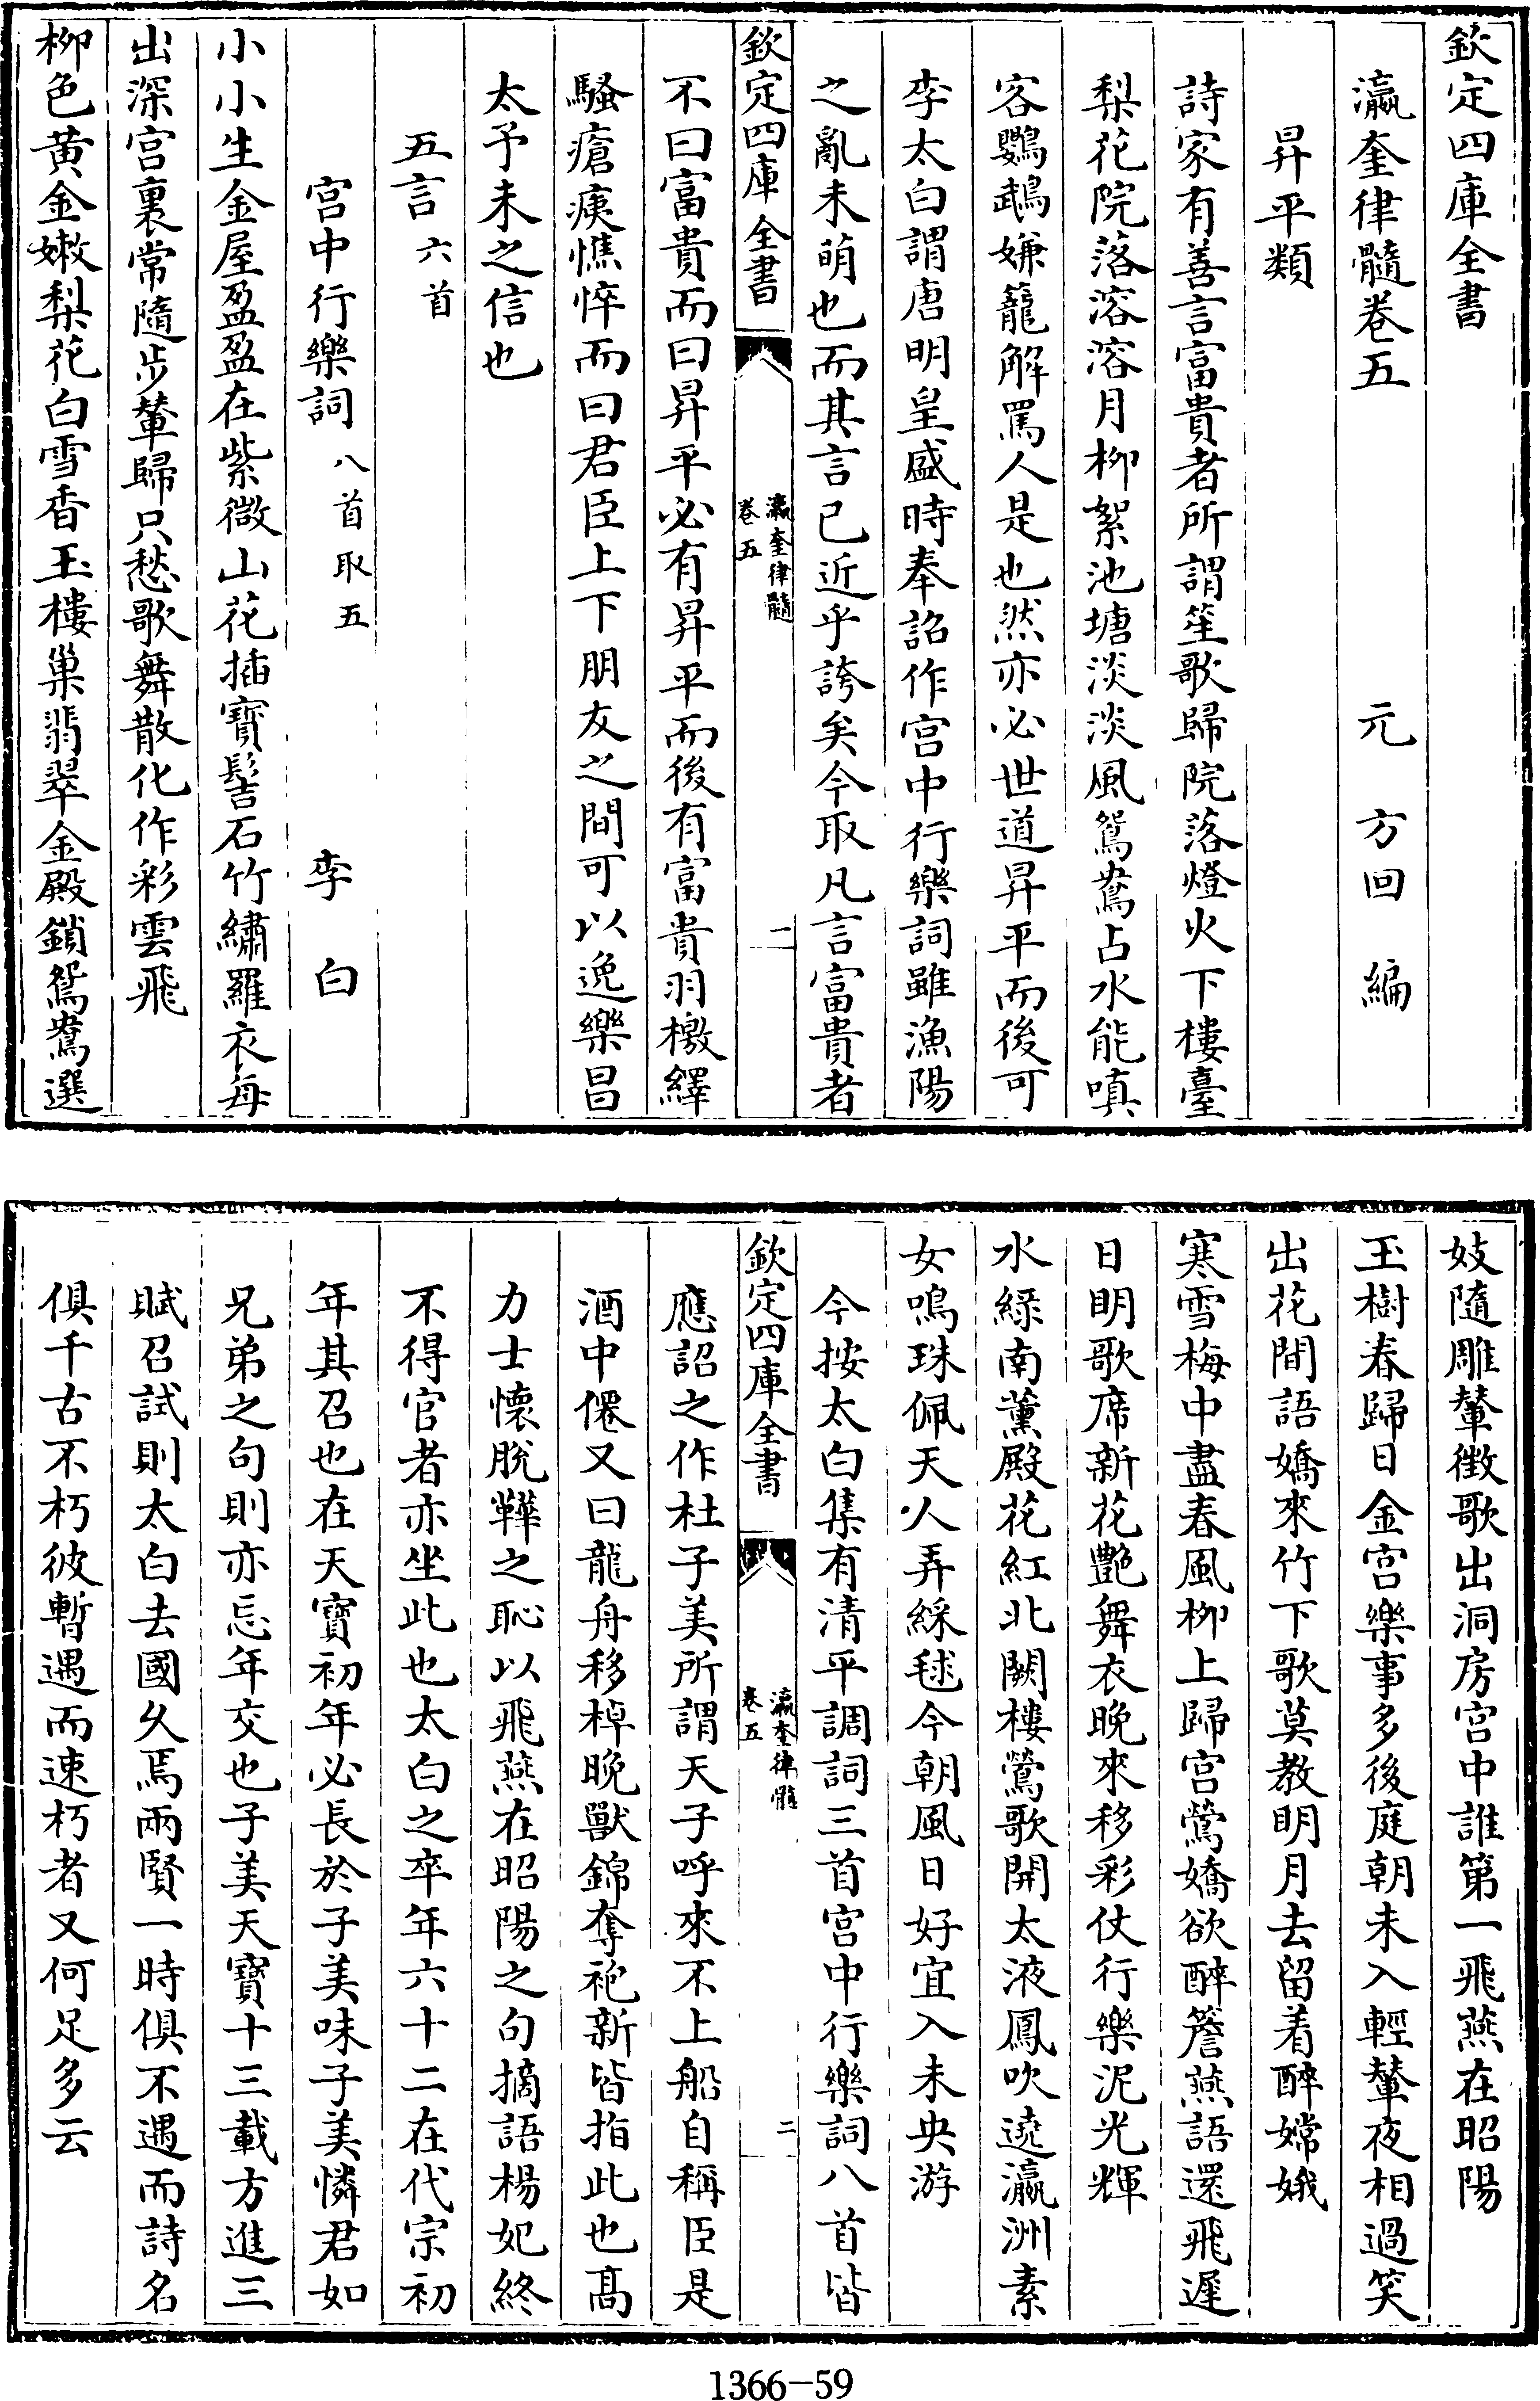 欽定四庫全書
瀛奎律髓卷五
元 方回 編
昇平類
詩家有善言富貴者所謂笙歌歸院落燈火下樓臺
梨花院落溶溶月柳絮池塘淡淡風鴛鴦占水能嗔
客鸚鵡嫌籠解罵人是也然亦必世道昇平而後可
李太白謂唐明皇盛時奉詔作宫中行樂詞雖漁陽
之亂未萌也而其言已近乎誇矣今取凡言富貴者
欽定四庫全書
瀛奎律髓
卷五
一
不曰富貴而曰昇平必有昇平而後有富貴羽檄繹
騷瘡痍憔悴而曰君臣上下朋友之間可以逸樂昌
太予未之信也
五言六首
宫中行樂詞八首取五 李白
小小生金屋盈盈在紫微山花插寶髻石竹繡羅衣每
出深宫裏常隨步輦歸只愁歌舞散化作彩雲飛
柳色黄金嫩梨花白雪香玉樓巢翡翠金殿鎖鴛鴦選
妓隨雕輦徵歌出洞房宫中誰第一飛燕在昭陽
玉樹春歸日金宫樂事多後庭朝未入輕輦夜相過笑
出花間語嬌來竹下歌莫教明月去留着醉嫦娥
寒雪梅中盡春風柳上歸宫鶯嬌欲醉簷燕語還飛遲
日明歌席新花艷舞衣晚來移彩仗行樂泥光輝
水緑南薰殿花紅北闕樓鶯歌開太液鳳吹遶瀛洲素
女鳴珠佩天人弄綵毬今朝風日好宜入未央游
今按太白集有清平調詞三首宫中行樂詞八首皆
欽定四庫全書
瀛奎律髓
卷五
二
應詔之作杜子美所謂天子呼來不上船自稱臣是
酒中僊又曰龍舟移棹晚獸錦奪袍新皆指此也髙
力士懷脫鞾之恥以飛燕在昭陽之句摘語楊妃終
不得官者亦坐此也太白之卒年六十二在代宗初
年其召也在天寶初年必長於子美味子美憐君如
兄弟之句則亦忘年交也子美天寶十三載方進三
賦召試則太白去國久焉兩賢一時俱不遇而詩名
俱千古不朽彼暫遇而速朽者又何足多云
1366-59